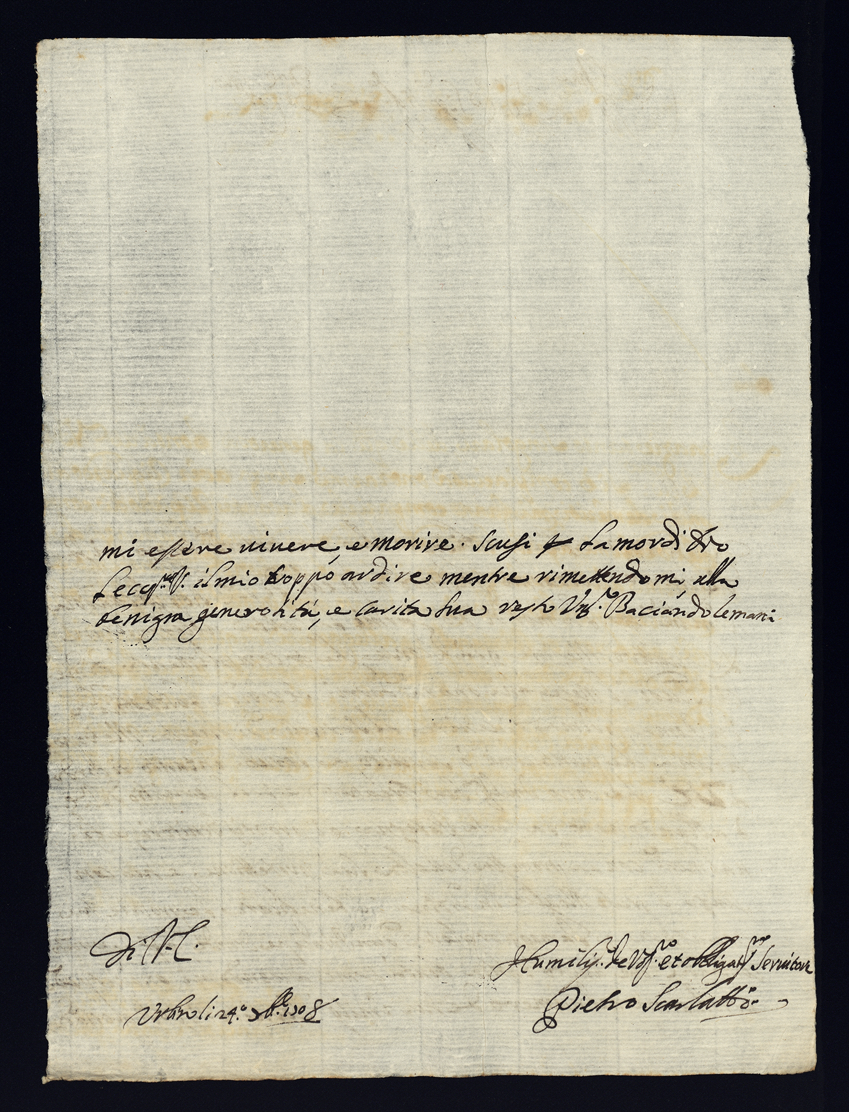 mi essere vivere, e morire. Scusi p. L'amor di Dio
l'ecc.ma V. il mio troppo ardire mentre rimettendomi, alla
benigna generosità, e Carità sua resto Baciandole mani
Di V. E.
Humiliss.o Dev.mo et obligatiss.mo Servitore
Urb.o li 24.o 1708
Pietro Scarlatti